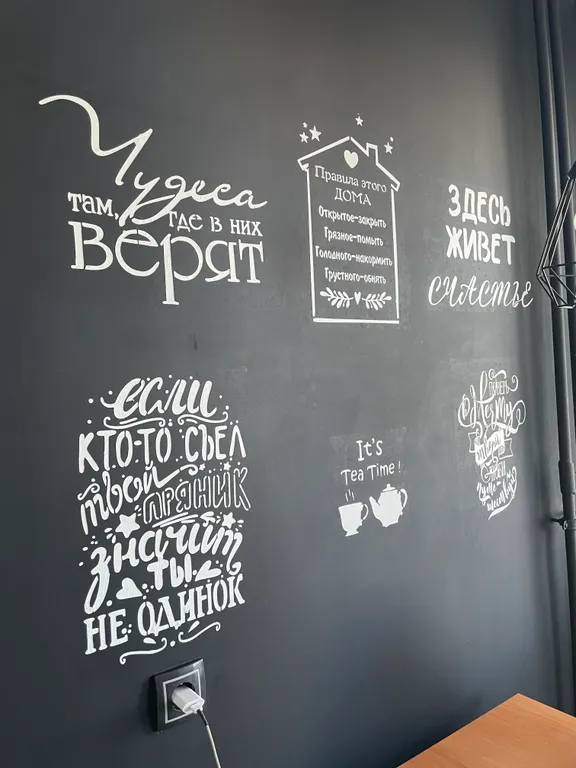 Чудеса
там, где в них
верят
Правила этого
ДОМА
Открытое-закрыть
Грязное-помыть
Голодного-накормить
Грустного-обнять
ЗДЕСЬ
ЖИВЕТ
СЧАСТЬЕ
если
КТО-ТО СЪЕЛ
твой ПРЯНИК
значит
ТЫ
НЕ ОДИНОК
It's
Tea Time!
мечту